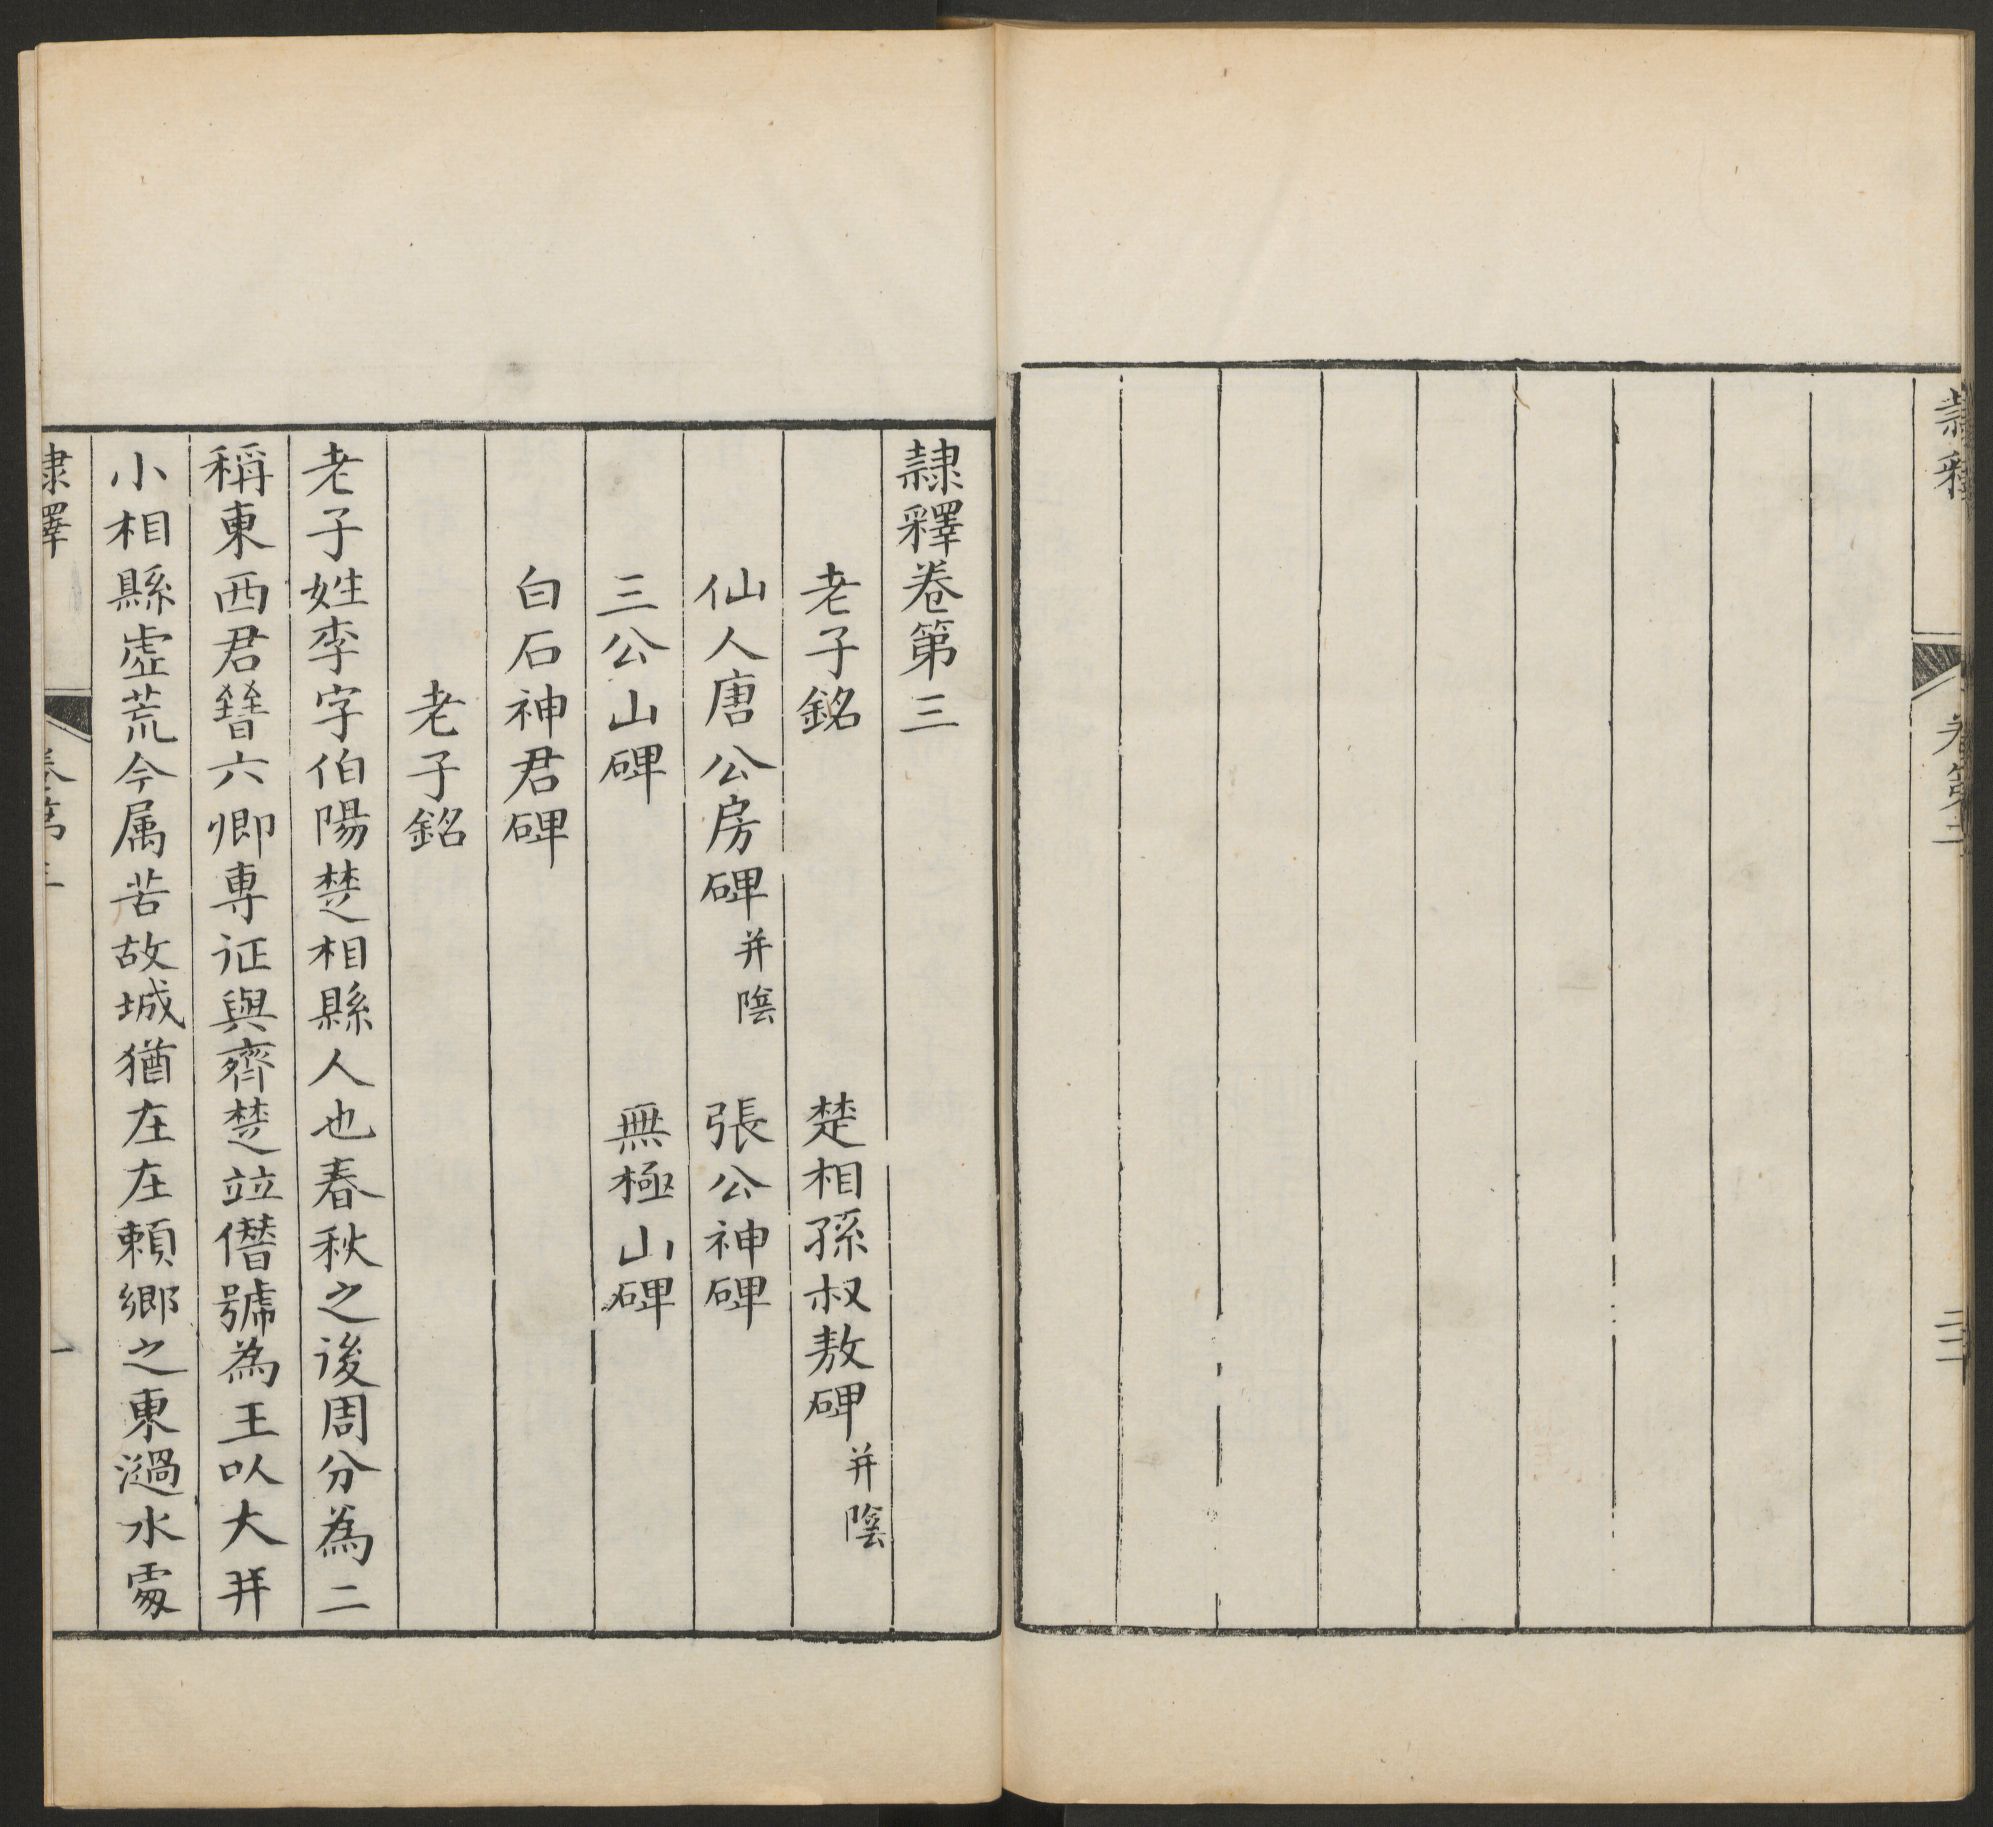 隸釋
卷第二
二十一
隸釋卷第三
老子銘 楚相孫叔敖碑并陰
仙人唐公房碑并陰 張公神碑
三公山碑 無極山碑
白石神君碑
老子銘
老子姓李字伯陽楚相縣人也春秋之後周分為二
稱東西君晉六卿專征與齊楚竝僭號為王以大并
小相縣虛荒今属苦故城猶在在賴鄉之東濄水處
隸釋
卷第三
一